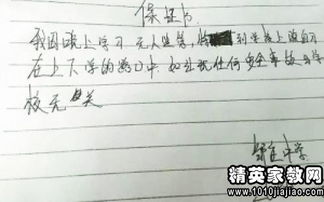 保证书
我因晚上学习无人监管，到学校上晚自习
在上下学的路口中，如出现任何安全事故与学
校无关
中学
精英家教网
www.1010jiajiao.com